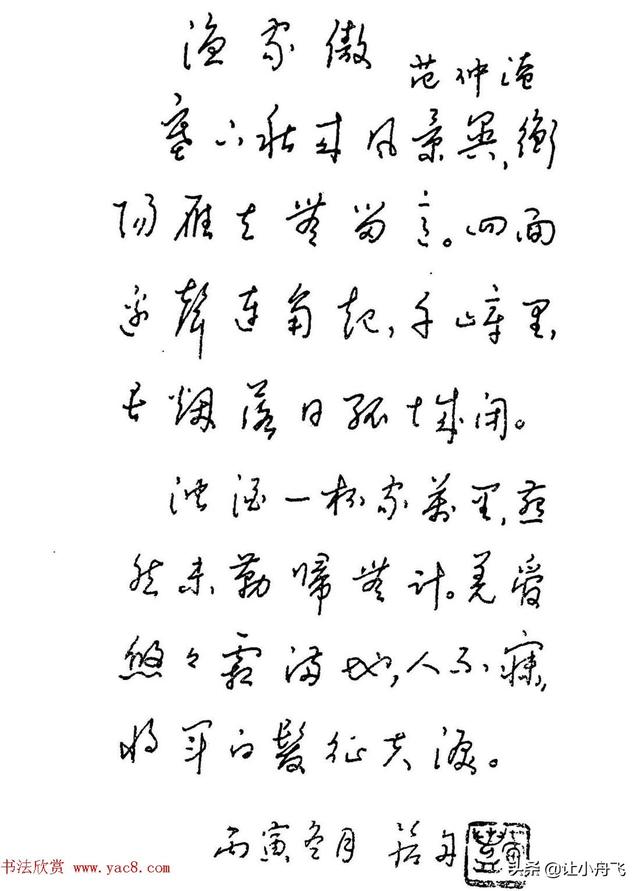 渔家傲 范仲淹
塞下秋来风景异,衡
阳雁去无留意。四面
边声連角起,千嶂里,
长烟落日孤城闭。
浊酒一杯家萬里,燕
然未勒归无计。羌管
悠々霜满地,人不寐,
将军白髮征夫泪。
丙寅冬月
书法欣赏 www.yac8.com
头条 @让小舟飞